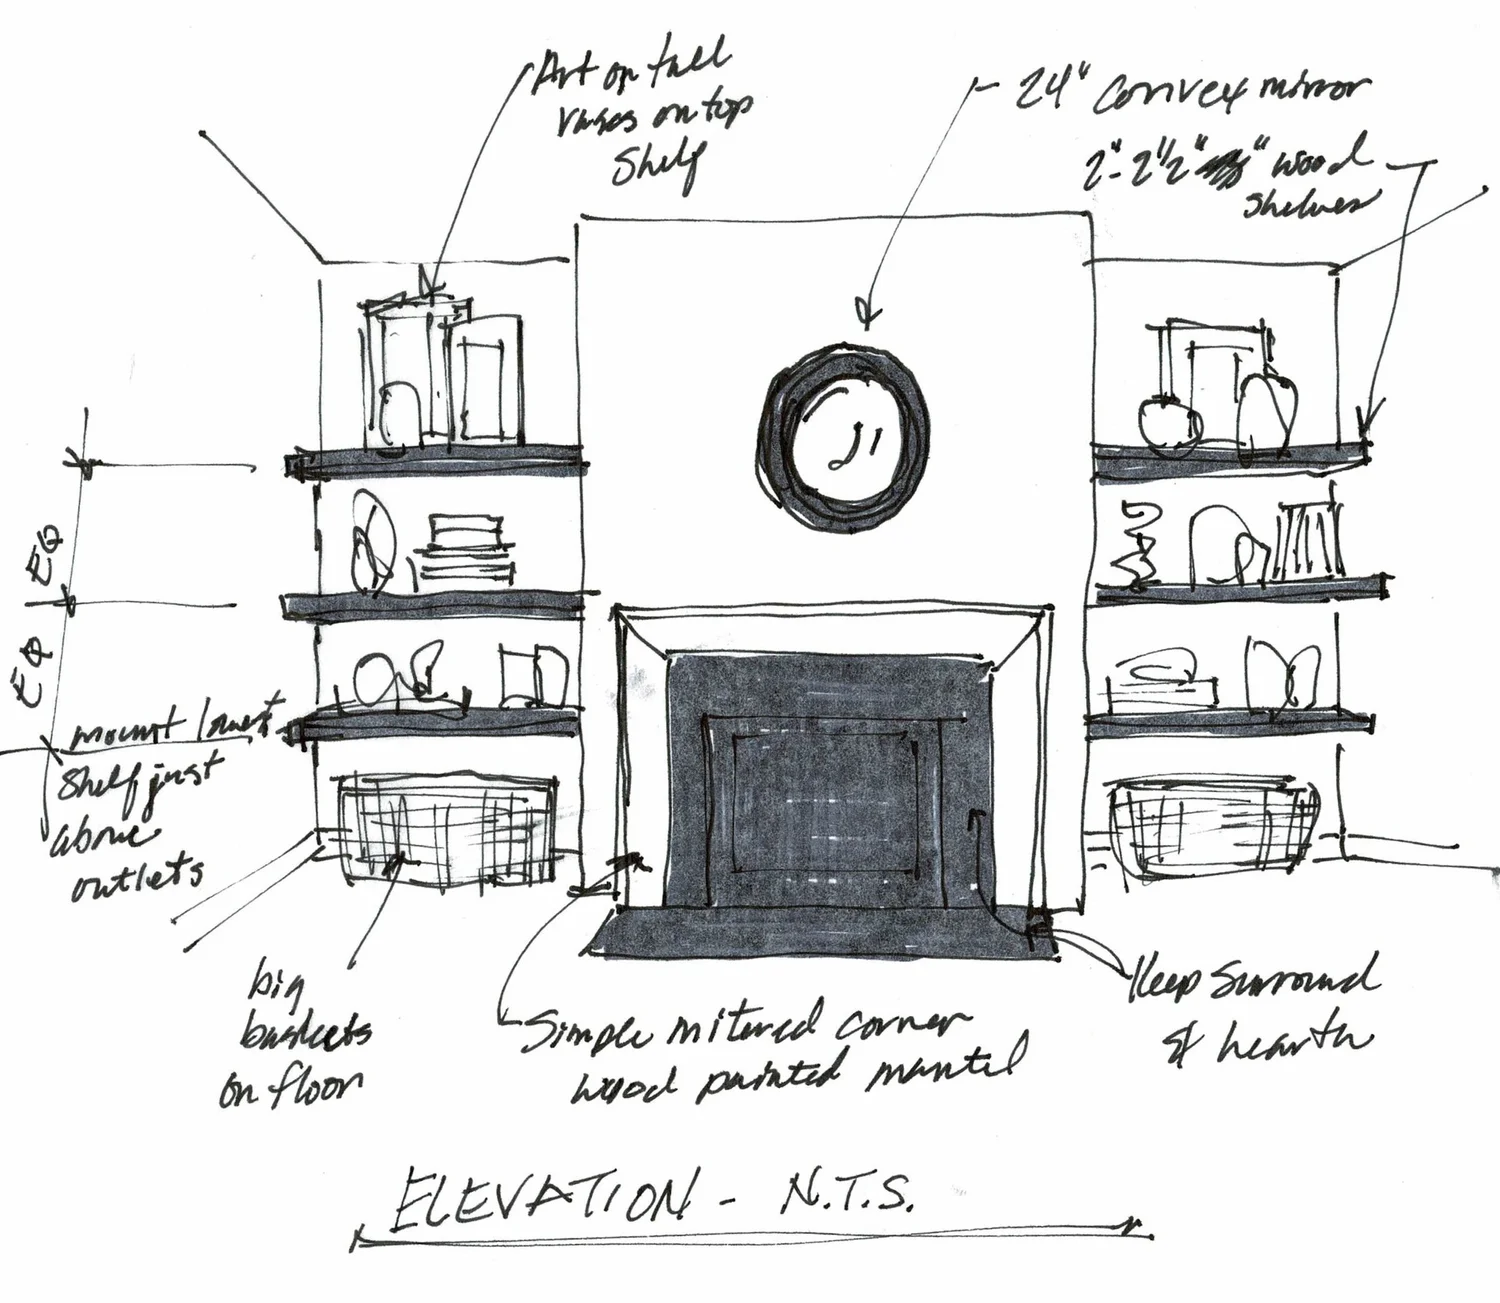 Art or tall
vases on top
shelf
24" convex mirror
2"-2 1/2" " wood
shelves
EQ
EQ
mount lowest
shelf just
above
outlets
big
baskets
on floor
Simple mitered corner
wood painted mantel
Keep surround
& hearth
ELEVATION - N.T.S.